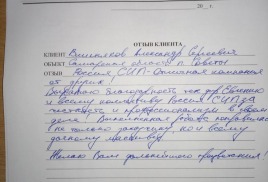 20__ г.
ОТЗЫВ КЛИЕНТА
КЛИЕНТ Вишняков Александр Сергеевич
ОБЪЕКТ Самарская область п.
ОТЗЫВ Россия СИП - Отличная компания
от других!
Выражаю благодарность
и всему коллективу Россия СИП за
честность и профессионализм в своем
деле! Выполненная работа понравилась
не только заказчику, но и всему
дачному массиву.
Желаю Вам дальнейшего процветания!